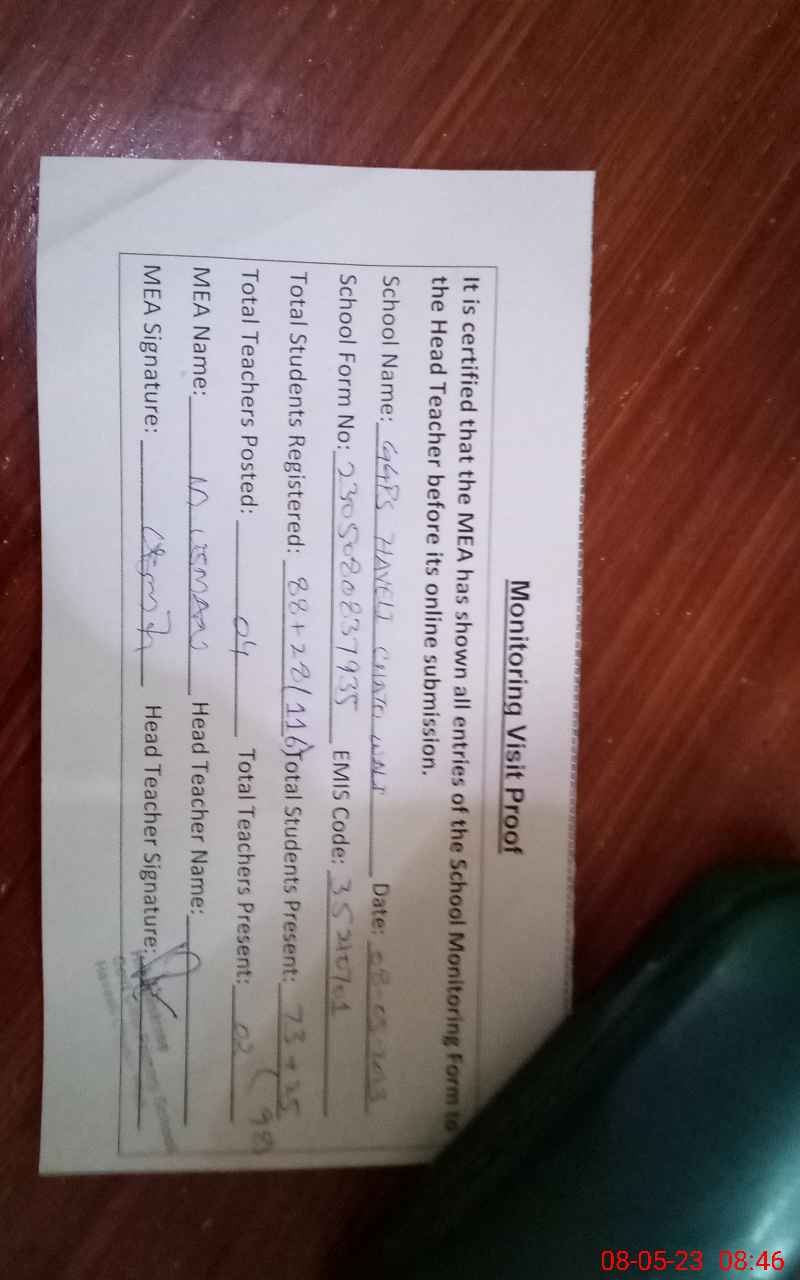 Monitoring Visit Proof
It is certified that the MEA has shown all entries of the School Monitoring Form to
the Head Teacher before its online submission.
School Name: GGPS HAVELI Date: 08-05-2023
School Form No: 2305080837935 EMIS Code: 35210701
Total Students Registered: 88+28(116) Total Students Present: 73+25 (98
Total Teachers Posted: 04 Total Teachers Present: 02
MEA Name: M USMAN Head Teacher Name:
MEA Signature: Head Teacher Signature:
08-05-23 08:46